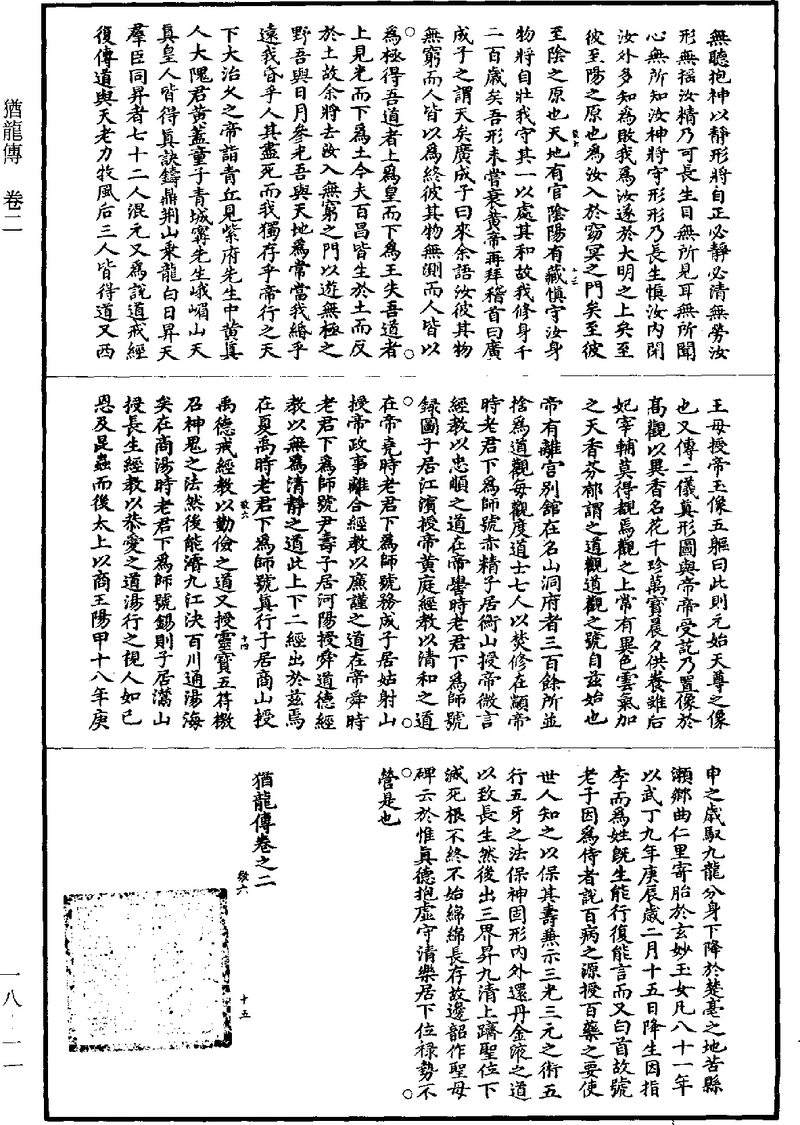 猶龍傳 卷二
無聽抱神以靜形將自正必靜必清無勞汝
形無搖汝精乃可長生目無所見耳無所聞
心無所知汝神將守形形乃長生慎汝內閉
汝外多知為敗我為汝遂於大明之上矣至
彼至陽之原也為汝入於窈冥之門矣至彼
至陰之原也天地有官陰陽有藏慎守汝身
物將自壯我守其一以處其和故我修身千
二百歲矣吾形未嘗衰黃帝再拜稽首曰廣
成子之謂天矣廣成子曰來余語汝彼其物
無窮而人皆以為終彼其物無測而人皆以
為極得吾道者上為皇而下為王失吾道者
上見光而下為土今夫百昌皆生於土而反
於土故余將去汝入無窮之門以遊無極之
野吾與日月參光吾與天地為常當我緡乎
遠我昏乎人其盡死而我獨存乎帝行之天
下大治久之帝詣青丘見紫府先生中黃真
人大隗君黃蓋童子青城甯先生峨嵋山天
真皇人皆得真訣鑄鼎荊山乘龍白日昇天
羣臣同昇者七十二人混元又為說道戒經
復傳道與天老力牧風后三人皆得道又西
王母授帝玉像五軀曰此則元始天尊之像
也又傳二儀真形圖與帝帝受訖乃置像於
高觀以異香名花千珍萬寶晨夕供養雖后
妃宰輔莫得覩焉觀之上常有異色雲氣加
之天香芬郁謂之道觀道觀之號自茲始也
帝有離宮別館在名山洞府者三百餘所並
捨為道觀每觀度道士七人以焚修在顓帝
時老君下為師號赤精子居衡山授帝微言
經教以忠順之道在帝嚳時老君下為師號
録圖子居江濱授帝黃庭經教以清和之道
在帝堯時老君下為師號務成子居姑射山
授帝政事離合經教以廉謹之道在帝舜時
老君下為師號尹壽子居河陽授舜道德經
教以無為清靜之道此上下二經出於茲焉
在夏禹時老君下為師號真行子居商山授
禹德戒經教以勤儉之道又授靈寶五符檄
召神鬼之法然後能濟九江決百川通湯海
矣在商湯時老君下為師號錫則子居灊山
授長生經教以恭愛之道湯行之視人如己
恩及昆蟲而後太上以商王陽甲十八年庚
申之歲馭九龍分身下降於楚亳之地苦縣
瀬鄉曲仁里寄胎於玄妙玉女凡八十一年
以武丁九年庚辰歲二月十五日降生因指
李而為姓既生能行復能言而又白首故號
老子因為侍者說百病之源授百藥之要使
世人知之以保其壽兼示三光三元之術五
行五牙之法保神固形內外還丹金液之道
以致長生然後出三界昇九清上躋聖位下
滅死根不終不始綿綿長存故邊韶作聖母
碑云於惟真德抱虛守清樂居下位祿勢不
營是也
猶龍傳卷之二
敬六
十三
敬六
十四
敬六
十五
一八 — 一一